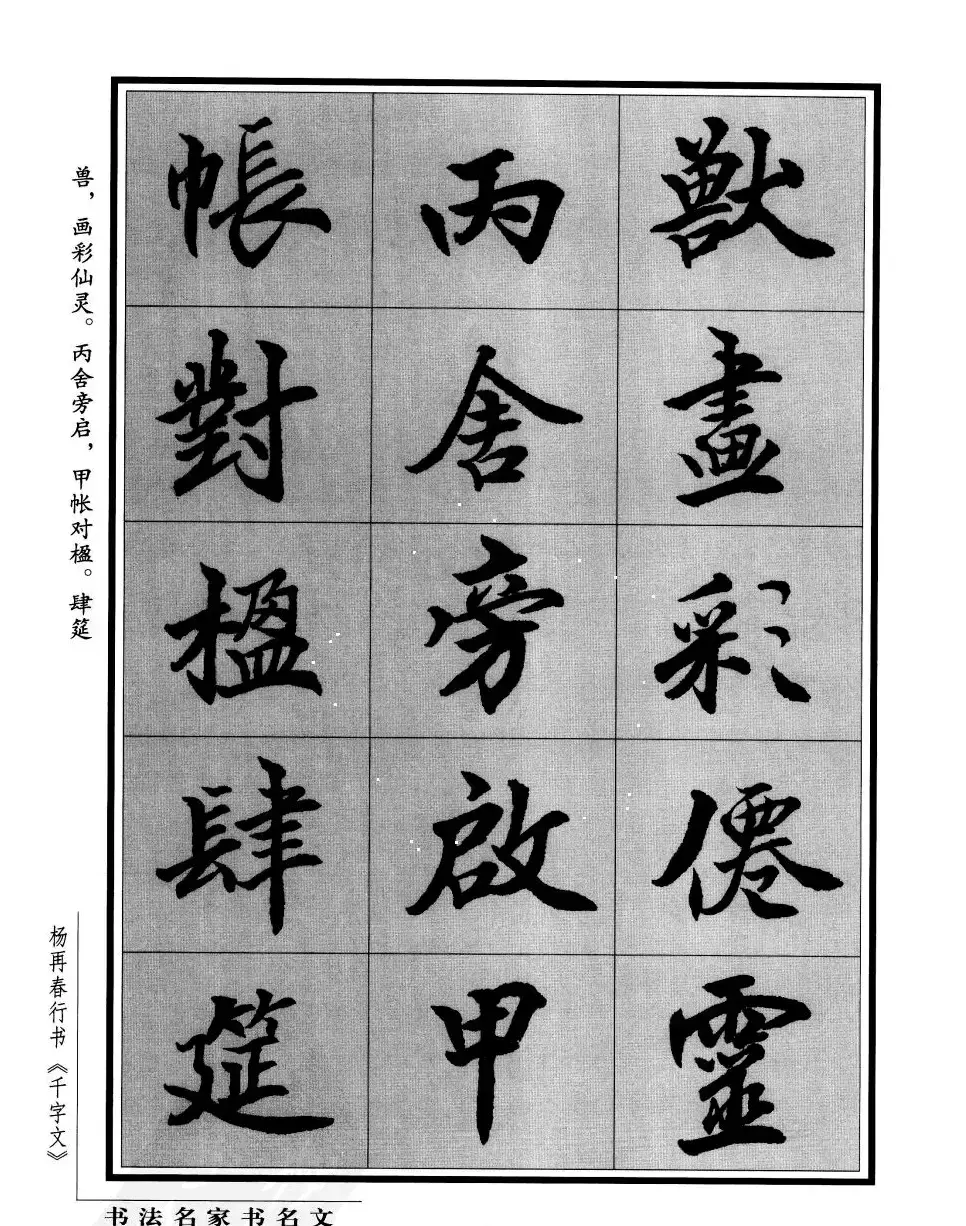 獸畫彩僊靈
丙舍旁啟甲
帳對楹肆筵
兽，画彩仙灵。丙舍旁启，甲帐对楹。肆筵
杨再春行书《千字文》
书法名家书名文